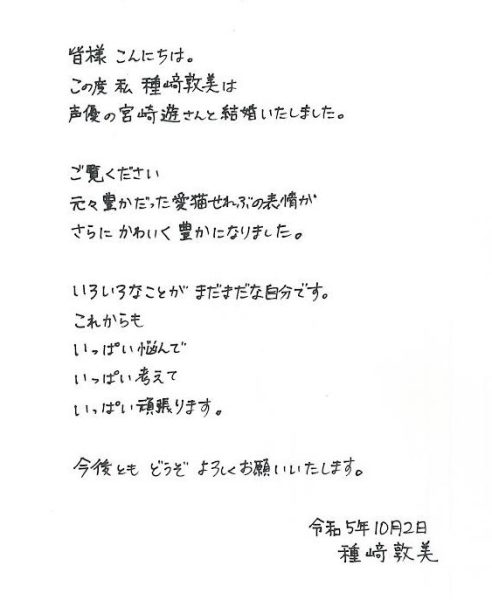 皆様 こんにちは。
この度 私 種﨑敦美は
声優の宮崎遊さんと結婚いたしました。
ご覧ください
元々豊かだった愛猫せれぶの表情が
さらに かわいく 豊かになりました。
いろいろなことが まだまだな自分です。
これからも
いっぱい悩んで
いっぱい考えて
いっぱい頑張ります。
今後とも どうぞ よろしくお願いいたします。
令和5年10月2日
種﨑敦美